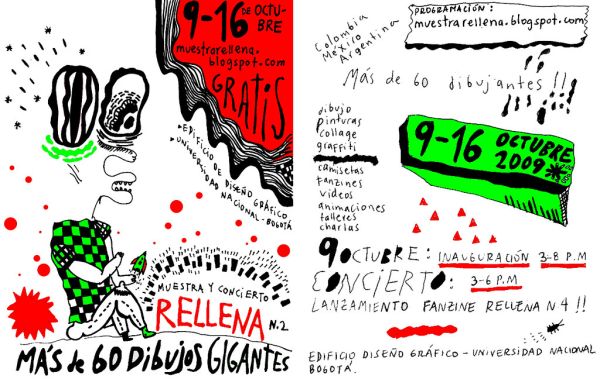 9-16 DE OCTUBRE
muestrarellena.
blogspot.com
GRATIS
EDIFICIO DE DISEÑO GRÁFICO
UNIVERSIDAD
NACIONAL-BOGOTÁ
MUESTRA Y CONCIERTO
RELLENA N.2
MÁS de 60 DIbUJOS GIGANTES
PROGRAMACIÓN:
muestrarellena.blogspot.com
Colombia
México
Argentina
MÁS de 60 dibujantes !!!
dibujo
pinturas
collage
graffiti
camisetas
fanzines
videos
animaciones
talleres
charlas
9-16 OCTUBRE
2009
9 OCTUBRE: INAUGURACIÓN 3-8 P.M
CONCIERTO: 3-6 P.M
LANZAMIENTO FANZINE RELLENA N4 !!
EDIFICIO DISEÑO GRÁFICO - UNIVERSIDAD NACIONAL
BOGOTÁ.